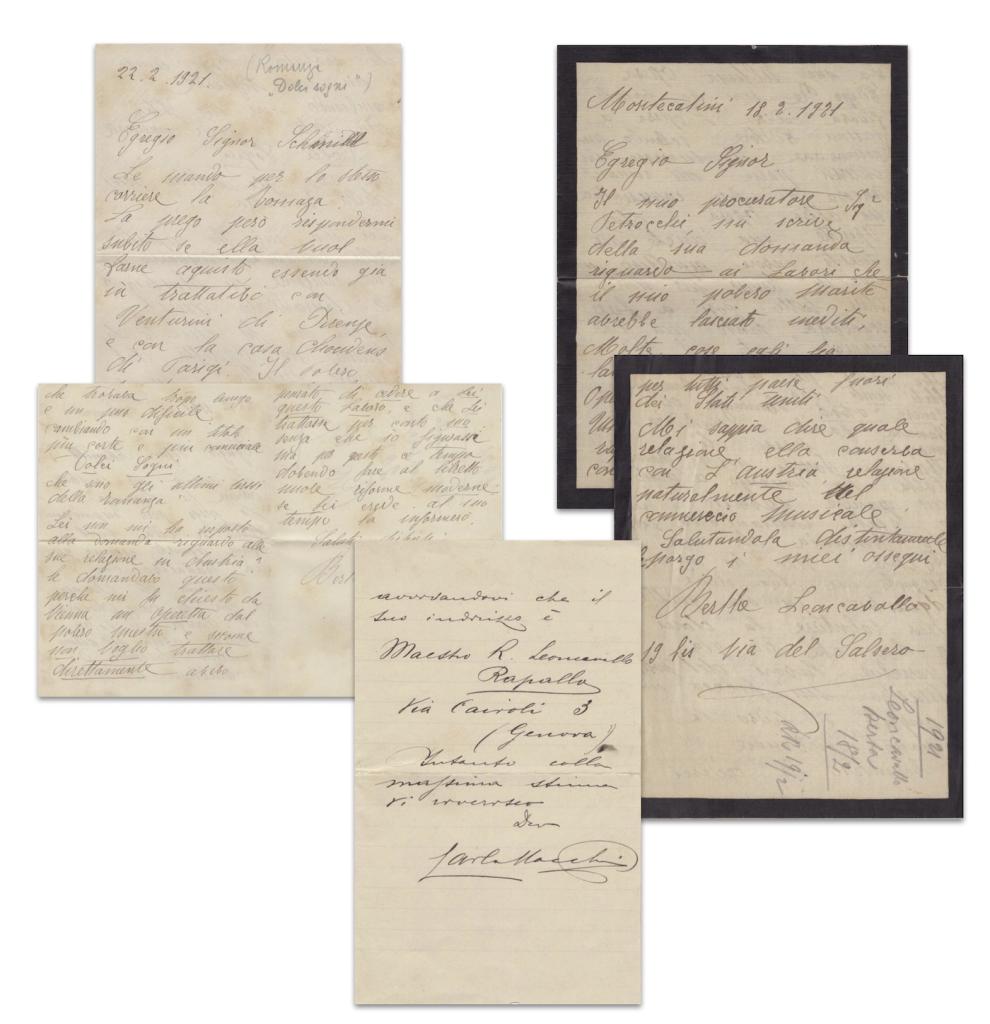 22.2.1921.
(Romanza
"Dolci sogni")
Egregio Signor Schmidl
Le mando per lo stesso
corriere la Romaza
La prego però rispondermi
subito se ella vuol
farne aquisto essendo già
in trattativi con
Venturini di Firenze,
e con la casa Choudens
di Parigi Il povero
che trovava tropo lungo
e un pur difficile
cambiando con un titolo
più corte e più comerciale
Dolci Sogni
che sono gli ultimi versi
della romanza!
Lei non mi ha risposto
alla domanda riguardo alle
sue relazione in Austria?
le domandavo questo
perche mi fu chiesto da
Vienna un Operetta del
povero maestro e siccome
non voglio trattare
direttamente avevo
pensato di cedere a Lei
questo lavoro, e che Lei
trattasse per conto suo
senza che io figurassi
ma per questo e tempo
dovendo fare al libretto
nuove riforme moderne
se Lei crede al suo
tempo la informerò.
Saluti
Bert
Montecatini 18.2.1921
Egregio Signor
Il mio procuratore Sigr
Petrocchi, mi scrive
della sua domanda
riguardo ai Lavori che
il mio povero marito
avrebbe lasciato inediti,
Molte cose egli ha
per tutti paese fuori
dei Stati Uniti
Mi sappia dire quale
relazione ella conserva
con L'Austria relazione
naturalmente del
commercio Musicale
Salutandola distintamente
porgo i miei ossequi
Berthe Leoncavallo
19 bis Via del Salsero
1921
Leoncavallo
Berta
18/2
19/2
avvisandovi che il
suo indirizzo è
Maestro R. Leoncavallo
Rapallo
Via Cairoli 3
(Genova)
Intanto colla
massima stima
vi riverisco
Dev
Carlo Macchi